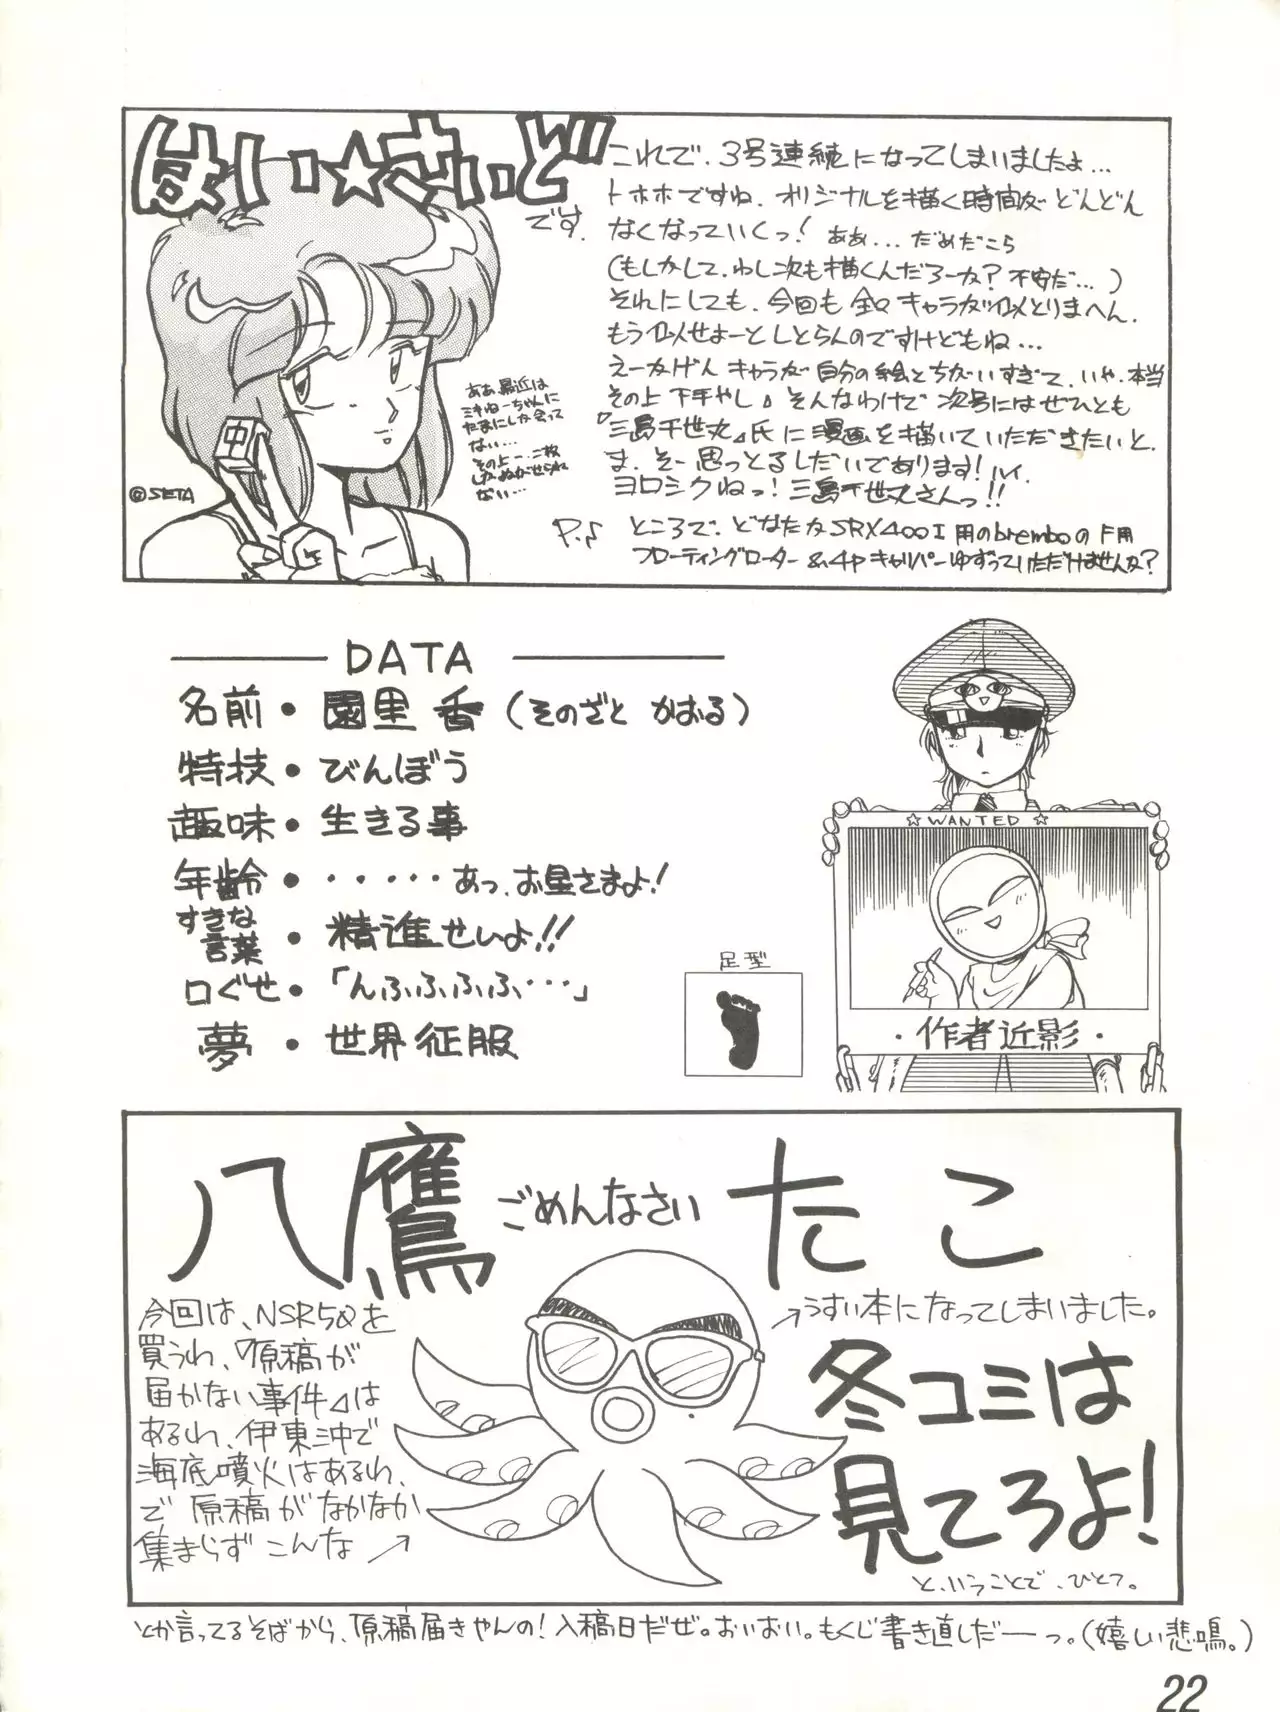 はい☆さいど
です。
これで、3号連続になってしまいましたよ…
トホホですね、オリジナルを描く時間がどんどん
なくなっていくっ！ ああ…だめだこら
(もしかして、わし次も描くんだろーか？不安だ…)
それにしても、今回も全々キャラが似とりまへん、
もう似せよーとしとらんのですけどもね…
えーかげんキャラが自分の絵とちがいすぎて、いや、本当
その上下手やし。そんなわけで次号にはぜひとも
『三島千世丸』氏に漫画を描いていただきたいと、
ま、そー思っとるしだいであります！ハイ、
ヨロシクねっ！三島千世丸さんっ!!
P.♪ ところで、どなたかSRX400I用のbremboのF用
フローティングローター&4Pキャリパーゆずっていただけませんか？
ああ、最近は
ミキねーちゃんに
たまにしか会って
ない…
その上一、二枚
しかぬがせられ
ない…
中
©SETA
DATA
名前・園里 香（そのざと かおる）
特技・びんぼう
趣味・生きる事
年齢・・・・・・あっ、お星さまよ！
すきな言葉・精進せいよ!!
口ぐせ・「んふふふふふ・・・」
夢・世界征服
足型
☆WANTED☆
・作者近影・
八鷹 ごめんなさい たこ
今回は、NSR50を
買うわ、『原稿が
届かない事件』は
あるわ、伊東沖で
海底噴火はあるわ、
で原稿がなかなか
集まらず こんな→
→うすい本になってしまいました。
冬コミは
見てろよ！
と、いうことで、ひとつ。
とか言ってるそばから、原稿届きやんの！入稿日だぜ。おいおい。もくじ書き直しだーっ。（嬉しい悲鳴。）
22